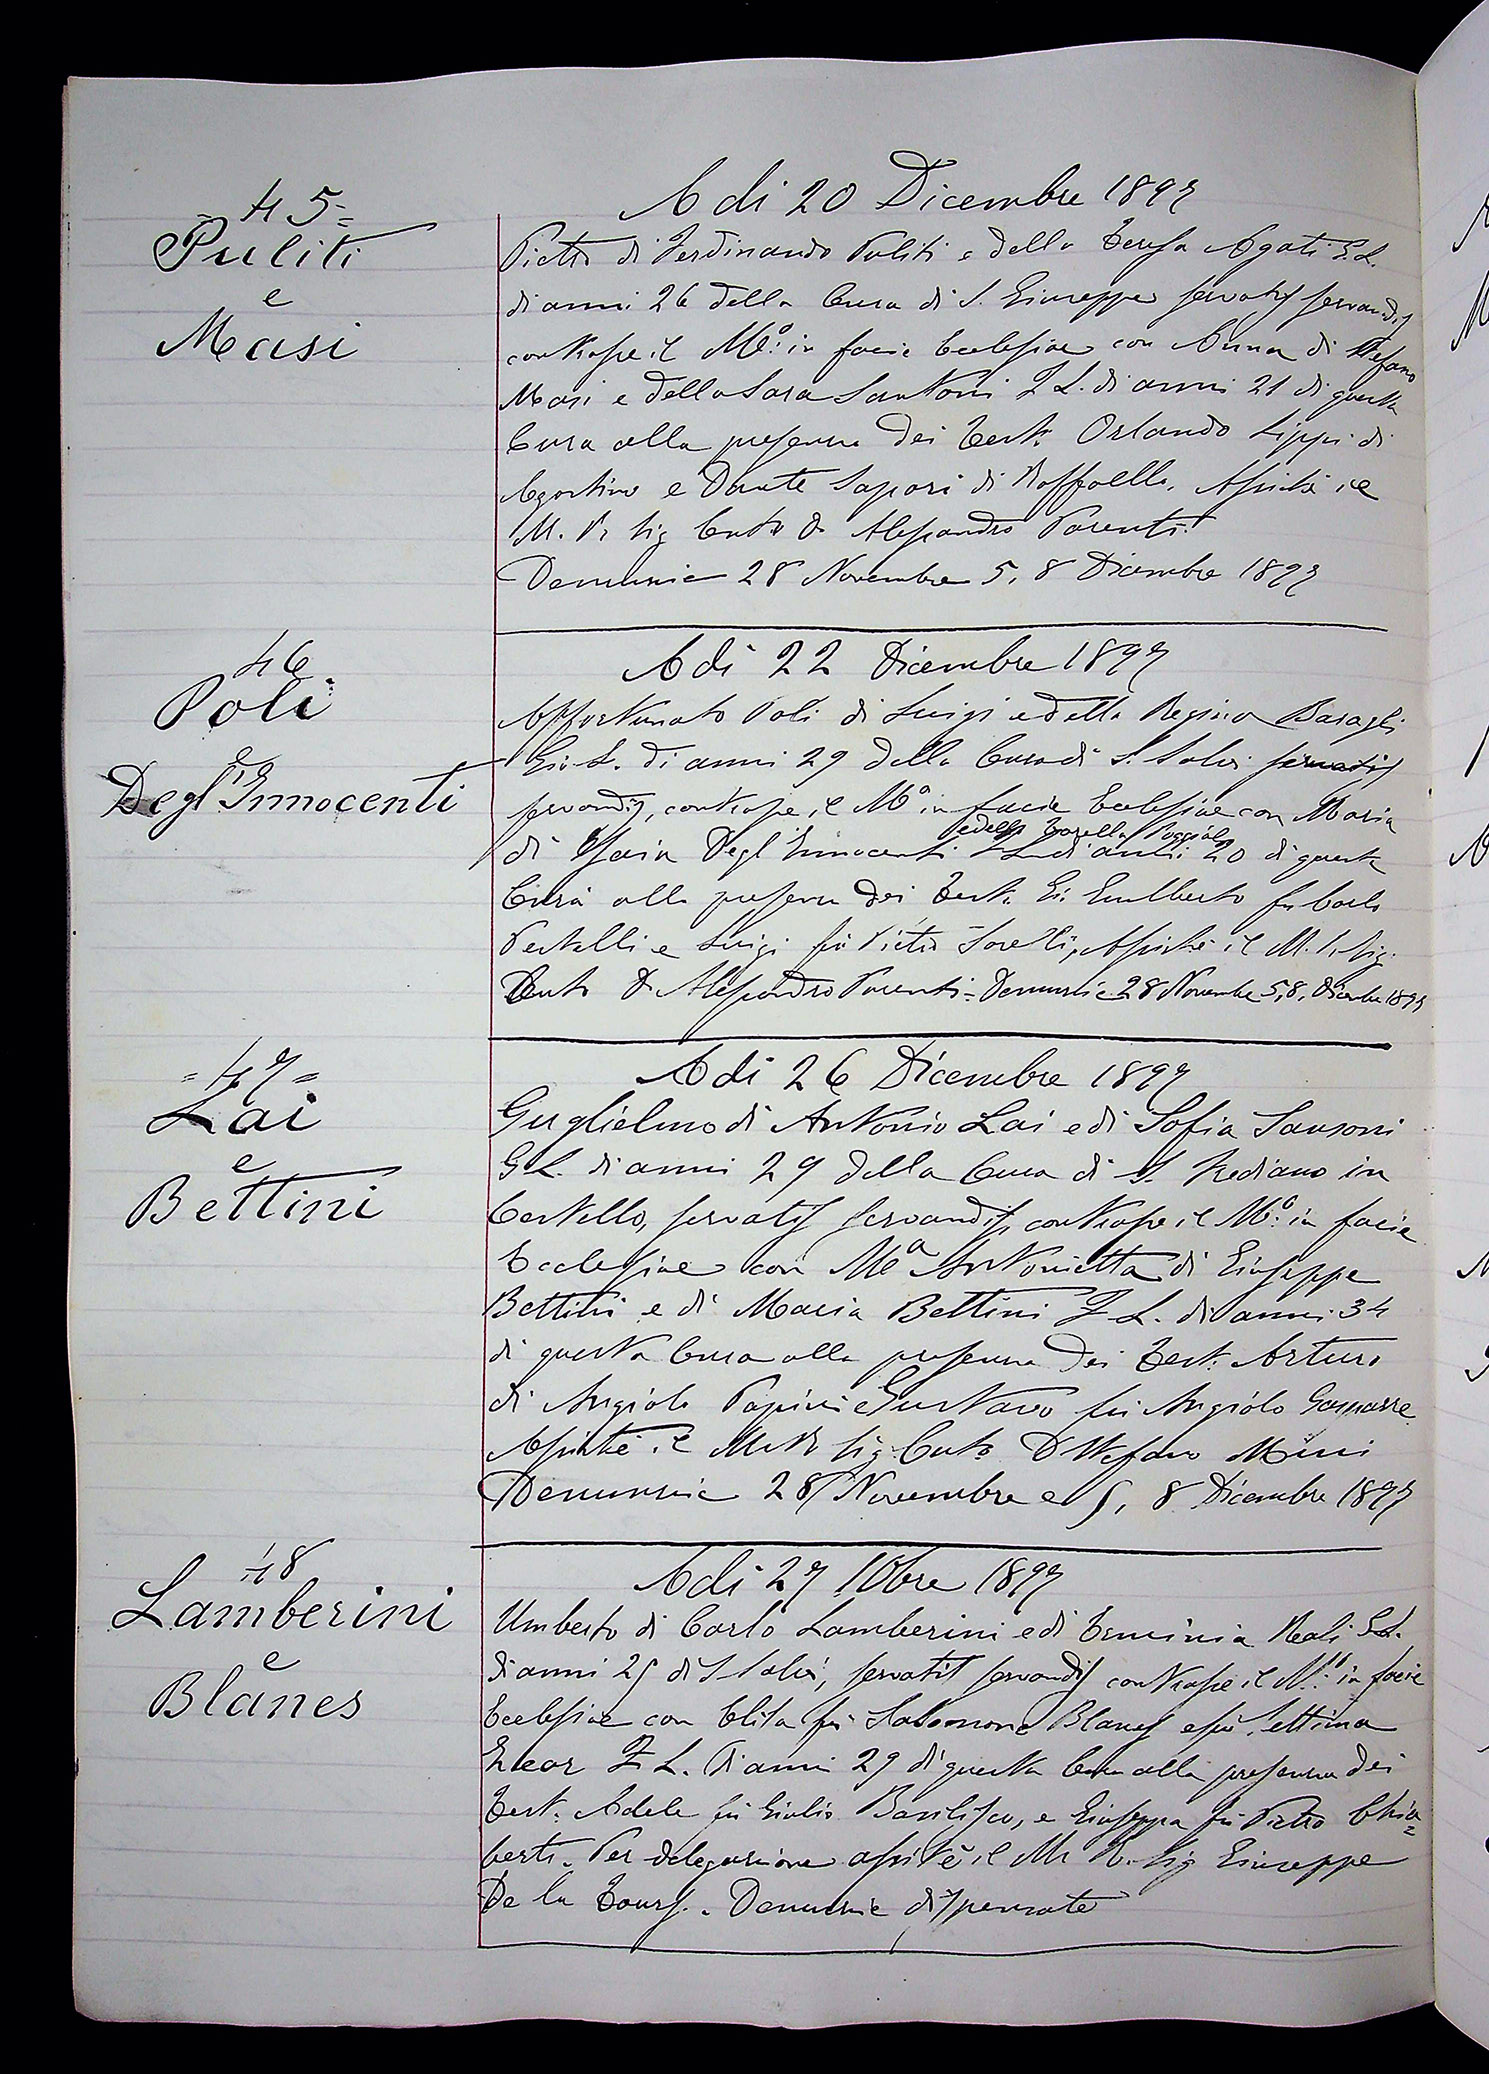 = 45 =
Puliti
e
Masi
A di 20 Dicembre 1897
Pietro di Ferdinando Puliti e della Teresa Agati G. L.
di anni 26 della Cura di S. Giuseppe servatis servandis
contrasse il Mo: in facie Ecclesiae con Anna di Stefano
Masi e della Sara Santoni F L. di anni 21 di questa
Cura alla presenza dei Testi Orlando Lippi di
Agostino e Dante Sapori di Raffaello. Assistè il
M. R. Sig Curto D. Alessandro Parenti.
Denunzie 28 Novembre 5, 8 Dicembre 1897
46
Poli
e
Degl'Innocenti
A di 22 Dicembre 1897
Affortunato Poli di Luigi e della Regina
Gio. L. di anni 29 della Cura di S. Salvi servatis
servandis, contrasse il Mo in facie Ecclesiae con Maria
e della
di Isaia Degl'Innocenti F L di anni 20 di questa
Cura alla presenza dei Testi Gualberto fu Carlo
e Luigi fu Pietro Assistè il M. R. Sig.
Curto D. Alessandro Parenti = Denunzie 28 Novembre 5, 8, Dicembre 1897
= 47 =
Lai
e
Bettini
A di 26 Dicembre 1897
Guglielmo di Antonio Lai e di Sofia Sansoni
G L. di anni 29 della Cura di S. Frediano in
Cestello, servatis servandis, contrasse il Mo: in facie
Ecclesiae con Ma Antonietta di Giuseppe
Bettini e di Maria Bettini F L. di anni 34
di questa Cura alla presenza dei Testi: Arturo
di Angiolo Papini e Gustavo fu Angiolo
Assistè il M R Sig. Curto D Stefano
Denunzie 28 Novembre e 5, 8 Dicembre 1897
48
Lamberini
e
Blanes
A di 27 10bre 1897
Umberto di Carlo Lamberini e di Erminia Reali G L.
di anni 25 di S Salvi, servatis servandis contrasse il Mo: in facie
Ecclesiae con Elisa fu Salomone Blanes e fu Settima
F L. di anni 29 di questa Cura alla presenza dei
Test. Adele fu Giulio Basilisco, e Giuseppa fu Pietro Chia=
berti. Per delegazione assistè il M R. Sig Giuseppe
De la Tours. Denunzie dispensate